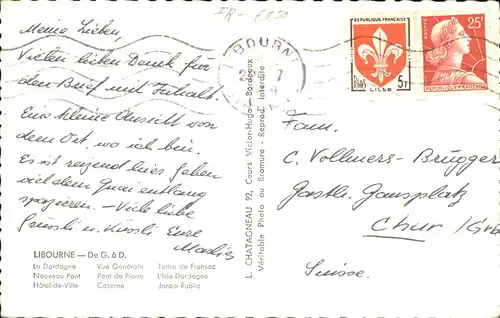 FR-6850
Meine Lieben,
Vielen lieben Dank für
den Brief und Inhalt.
Eine kleine Ansicht von
dem Ort, wo ich bin.
Es ist reizend hier, gehen
viel dem Quai entlang
spazieren. – Viele liebe
Grüssli u. Küssli Eure
LIBOURNE — De G. à D.
La Dordogne Vue Générale Tertre de Fronsac
Nouveau Pont Pont de Pierre L'Isle-Dordogne
Hôtel-de-Ville Caserne Jardin-Public
L. CHATAGNEAU 92, Cours Victor-Hugo - Bordeaux
Véritable Photo au Bromure - Reprod. Interdite
LIBOURNE
REPUBLIQUE FRANÇAISE
5F
LILLE
POSTES
25F
REPUBLIQUE FRANÇAISE
Fam.
C. Vollmers-Brügger
Gansplatz
Chur /Grb
Suisse.